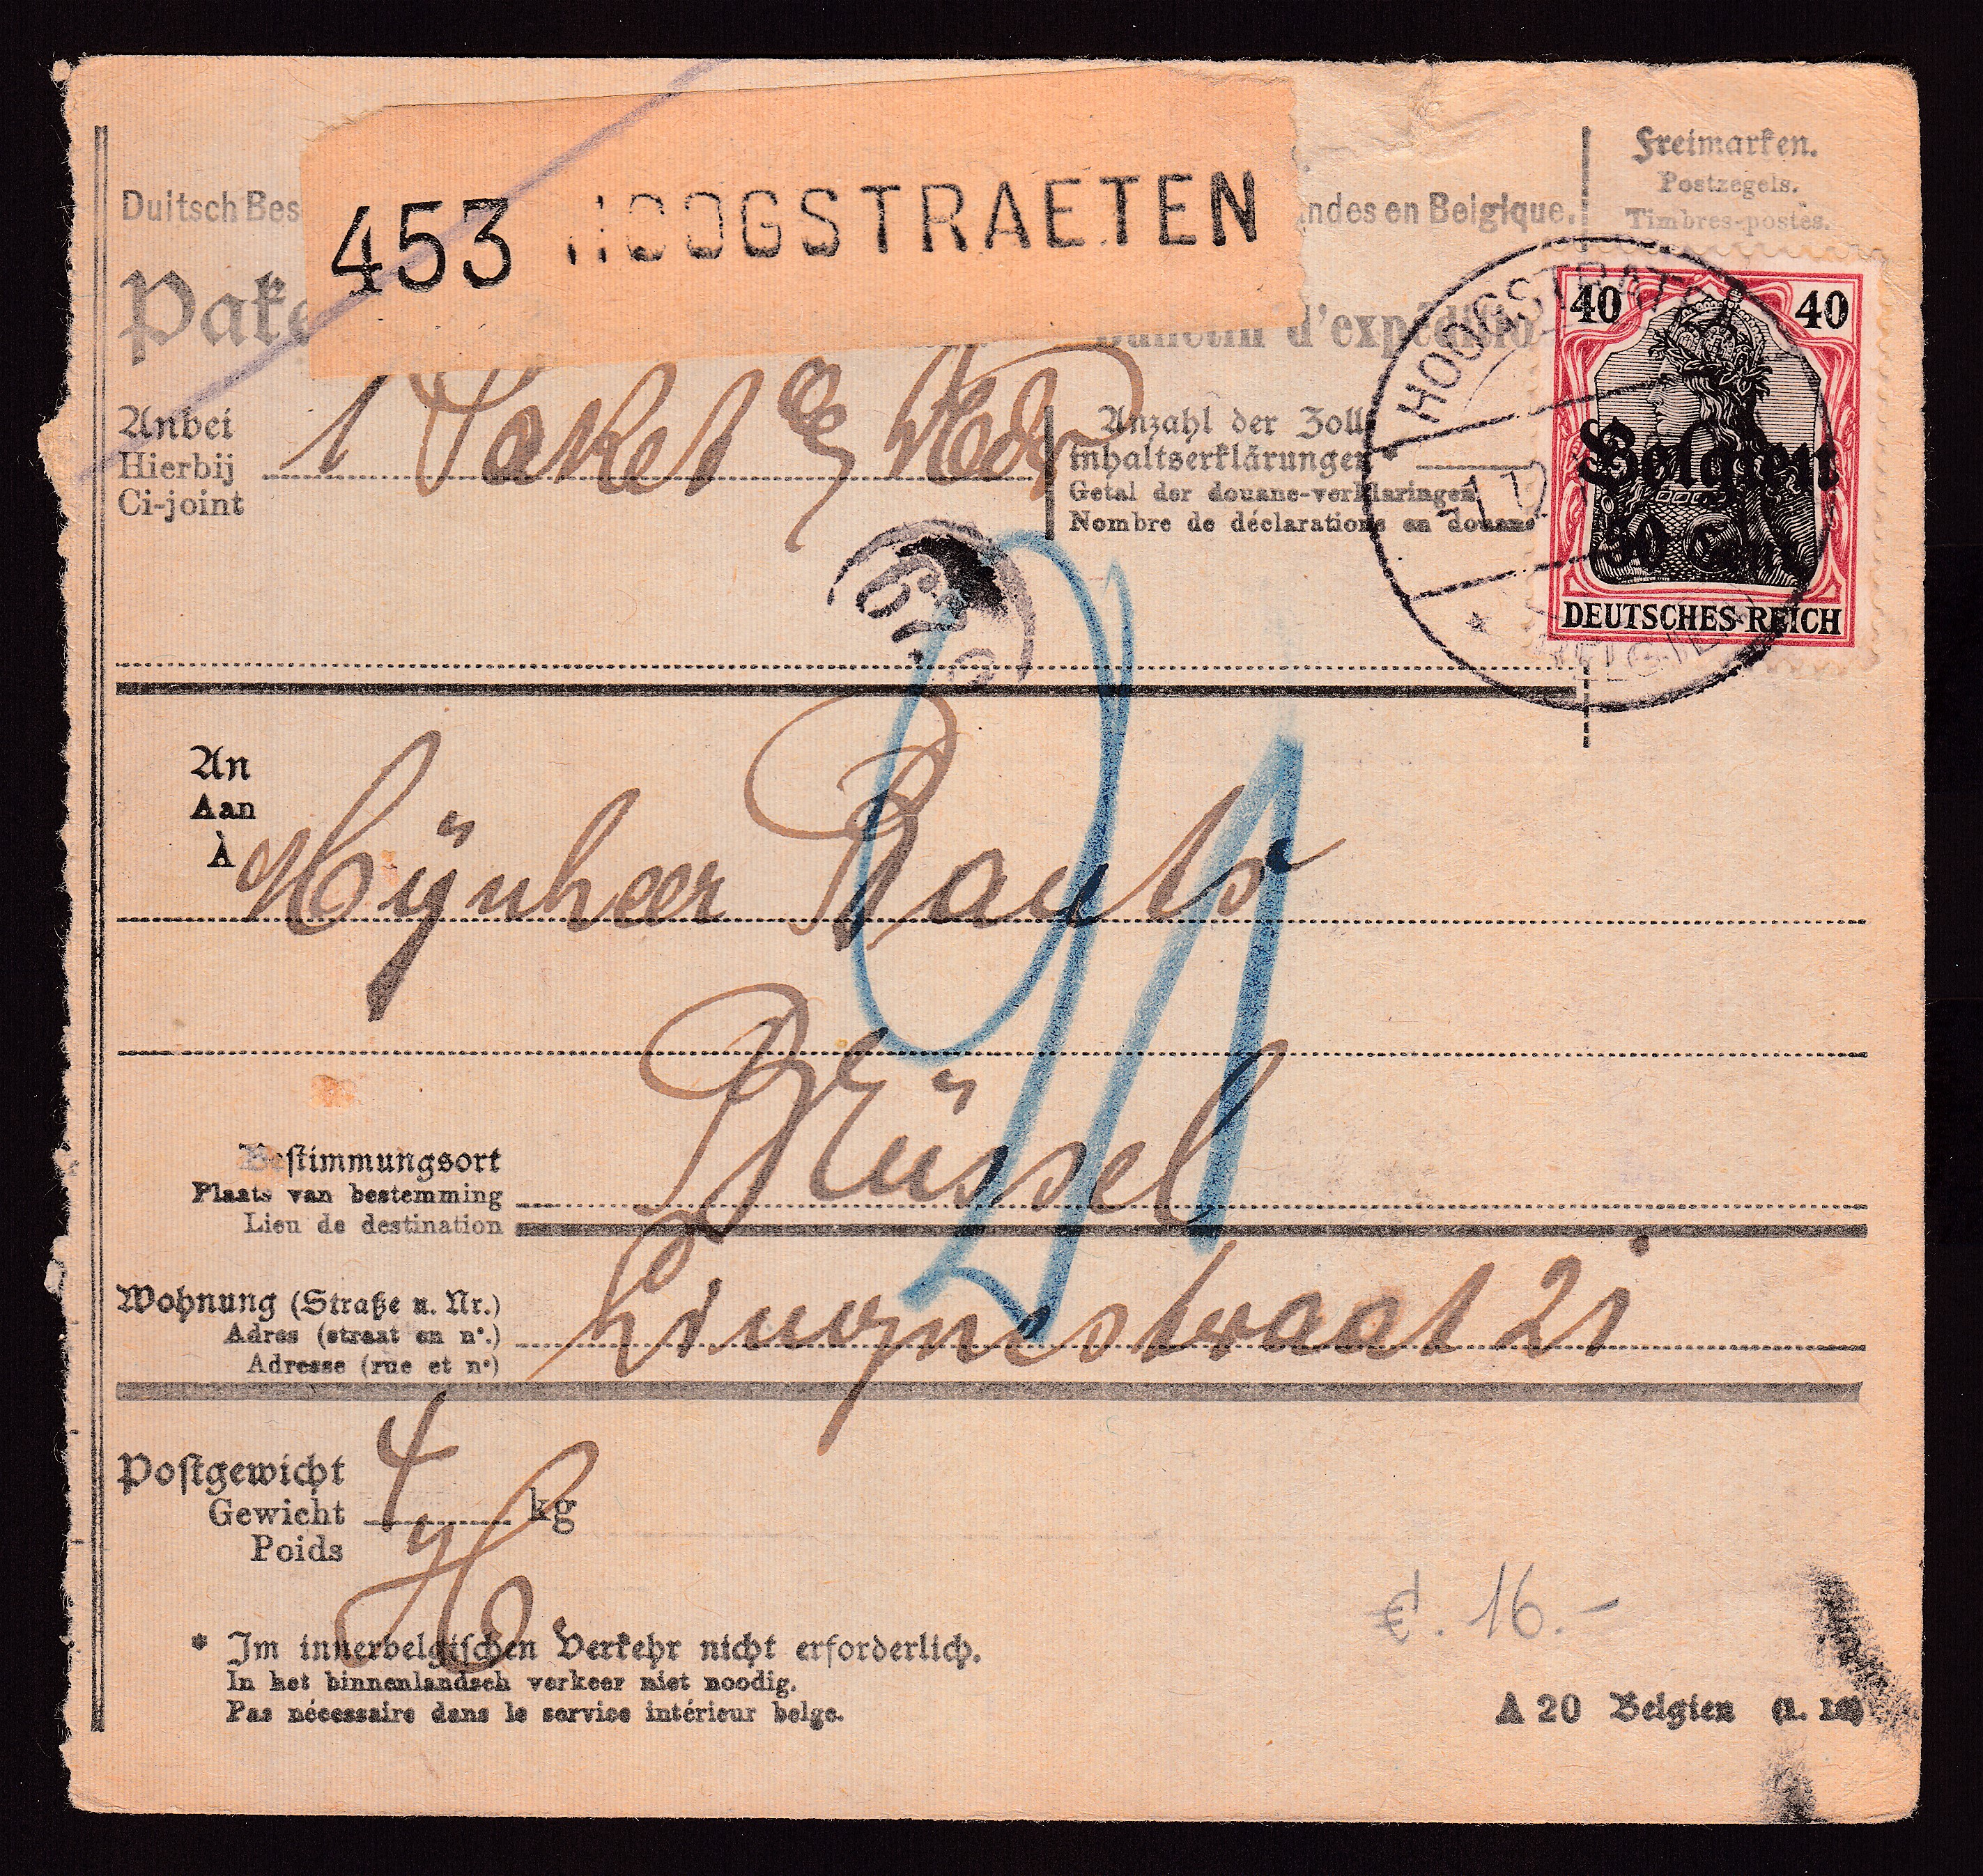 453 HOOGSTRAETEN
Duitsch Bes
ndes en Belgique.
Freimarken.
Postzegels.
Timbres-postes.
Pake
Bulletin d'expéditio
HOOGSTRATEN
40 40
Belgien
50 Cent
DEUTSCHES REICH
BELGIEN
Anbei
Hierbij
Ci-joint
1 Paket
Anzahl der Zoll
inhaltserklärungen *
Getal der douane-verklaringen
Nombre de déclarations en douane
An
Aan
À
Mijnheer Rauts
Bestimmungsort
Plaats van bestemming
Lieu de destination
Brüssel
Wohnung (Straße u. Nr.)
Adres (straat en n°.)
Adresse (rue et n°)
straat 21
Postgewicht
Gewicht
Poids
4 kg
* Im innerbelgischen Verkehr nicht erforderlich.
In het binnenlandsch verkeer niet noodig.
Pas nécessaire dans le service intérieur belge.
€. 16.-
A 20 Belgien